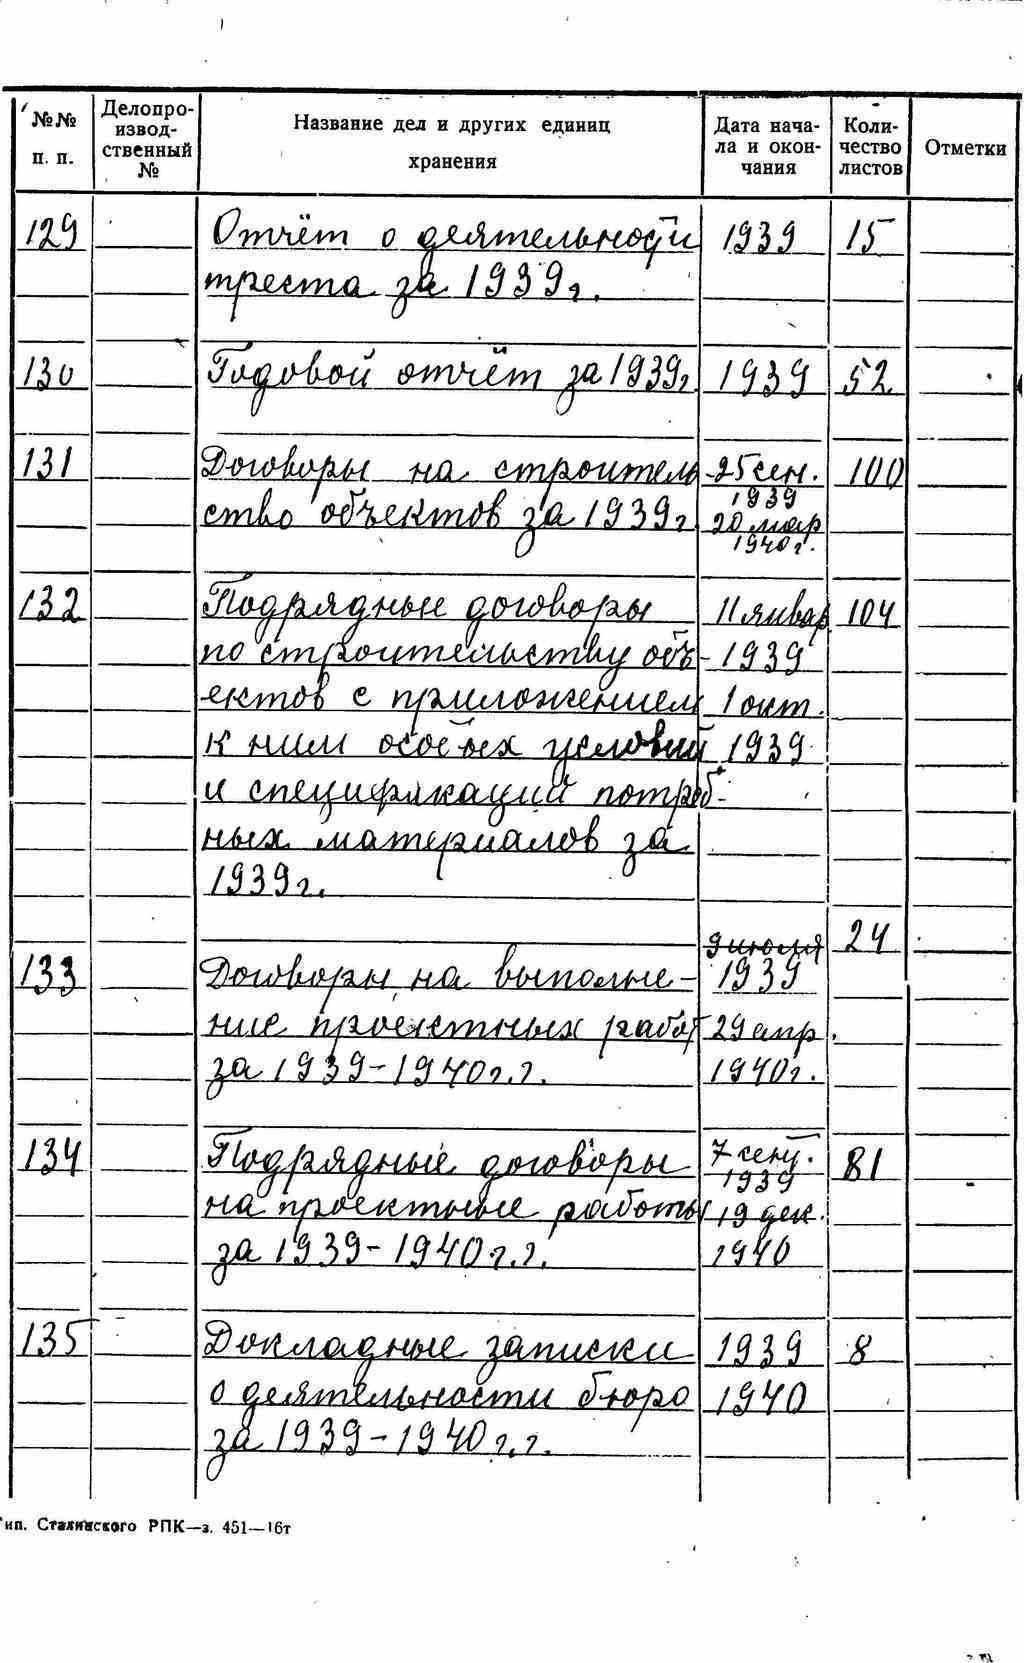 №№ п. п. Делопроизводственный № Название дел и других единиц хранения Дата начала и окончания Количество листов Отметки
129 Отчёт о деятельности 1939 15
треста за 1939г.
130 Годовой отчёт за 1939г. 1939 52
131 Договоры на строитель 25 сен. 100
1939
ство объектов за 1939г 20 мар
1940г.
132 Подрядные договоры 11 январ 104
по строительству объ- 1939
ектов с приложением 1 окт.
к ним особых условий 1939
и спецификаций потреб-
ных материалов за
1939г.
9 июля 24
133 Договоры на выполне- 1939
ние проектных работ 29 апр.
за 1939-1940г.г. 1940г.
134 Подрядные договоры 7 сент. 81
1939
на проектные работы 19 дек.
за 1939-1940г.г. 1940
135 Докладные записки 1939 8
о деятельности бюро 1940
за 1939-1940г.г.
Тип. Сталинского РПК—з. 451—16т